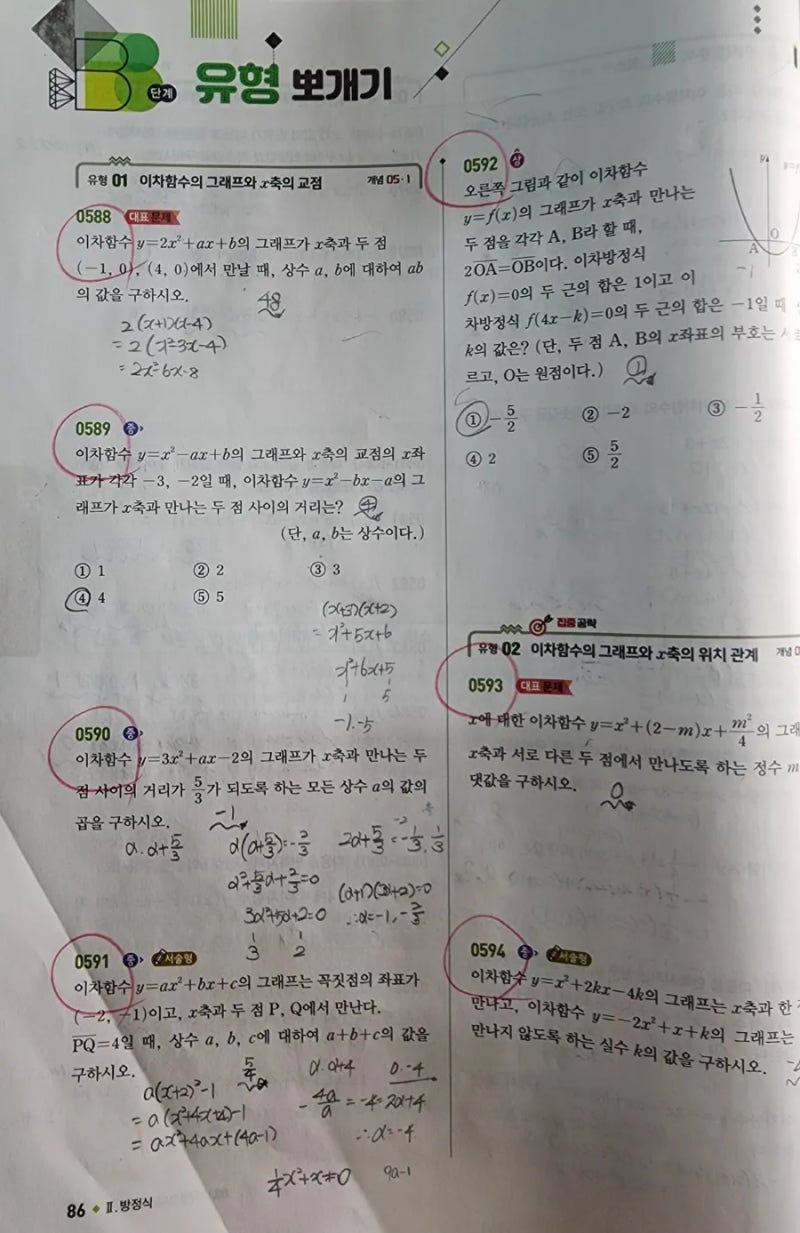 B 단계 유형 뽀개기
유형 01 이차함수의 그래프와 x축의 교점 개념 05·1
0588 대표 문제
이차함수 y=2x²+ax+b의 그래프가 x축과 두 점
(-1, 0), (4, 0)에서 만날 때, 상수 a, b에 대하여 ab
의 값을 구하시오.
48
2(x+1)(x-4)
=2(x²-3x-4)
=2x²-6x-8
0589 중
이차함수 y=x²-ax+b의 그래프와 x축의 교점의 x좌
표가 각각 -3, -2일 때, 이차함수 y=x²-bx-a의 그
래프가 x축과 만나는 두 점 사이의 거리는? ④
(단, a, b는 상수이다.)
① 1 ② 2 ③ 3
④ 4 ⑤ 5
(x+3)(x+2)
=x²+5x+6
x²+6x+5
1 5
-1, -5
0590 중
이차함수 y=3x²+ax-2의 그래프가 x축과 만나는 두
점 사이의 거리가 5/3가 되도록 하는 모든 상수 a의 값의
곱을 구하시오.
-1
α. α+5/3 α(α+5/3)=-2/3 2α+5/3=-1/3, 1/3
α²+5/3α+2/3=0
(α+1)(3α+2)=0
3α²+5α+2=0 ∴α=-1, -2/3
1 1
3 2
0591 중 서술형
이차함수 y=ax²+bx+c의 그래프는 꼭짓점의 좌표가
(-2, -1)이고, x축과 두 점 P, Q에서 만난다.
PQ=4일 때, 상수 a, b, c에 대하여 a+b+c의 값을
구하시오.
5/4
α. α+4 0. -4
a(x+2)²-1
=a(x²+4x+4)-1
=ax²+4ax+(4a-1)
-4a/a=-4=2α+4
∴α=-4
1/4x²+x=0 9a-1
86 Ⅱ. 방정식
0592 상
오른쪽 그림과 같이 이차함수
y=f(x)의 그래프가 x축과 만나는
두 점을 각각 A, B라 할 때,
2OA=OB이다. 이차방정식
f(x)=0의 두 근의 합은 1이고 이
차방정식 f(4x-k)=0의 두 근의 합은 -1일 때
k의 값은? (단, 두 점 A, B의 x좌표의 부호는
르고, O는 원점이다.) ①
y
A O
-1
① -5/2 ② -2 ③ -1/2
④ 2 ⑤ 5/2
집중공략
유형 02 이차함수의 그래프와 x축의 위치 관계 개념 0
0593 대표 문제
x에 대한 이차함수 y=x²+(2-m)x+m²/4의 그래
x축과 서로 다른 두 점에서 만나도록 하는 정수 m
댓값을 구하시오.
0
0594 중 서술형
이차함수 y=x²+2kx-4k의 그래프는 x축과 한
만나고, 이차함수 y=-2x²+x+k의 그래프는
만나지 않도록 하는 실수 k의 값을 구하시오.